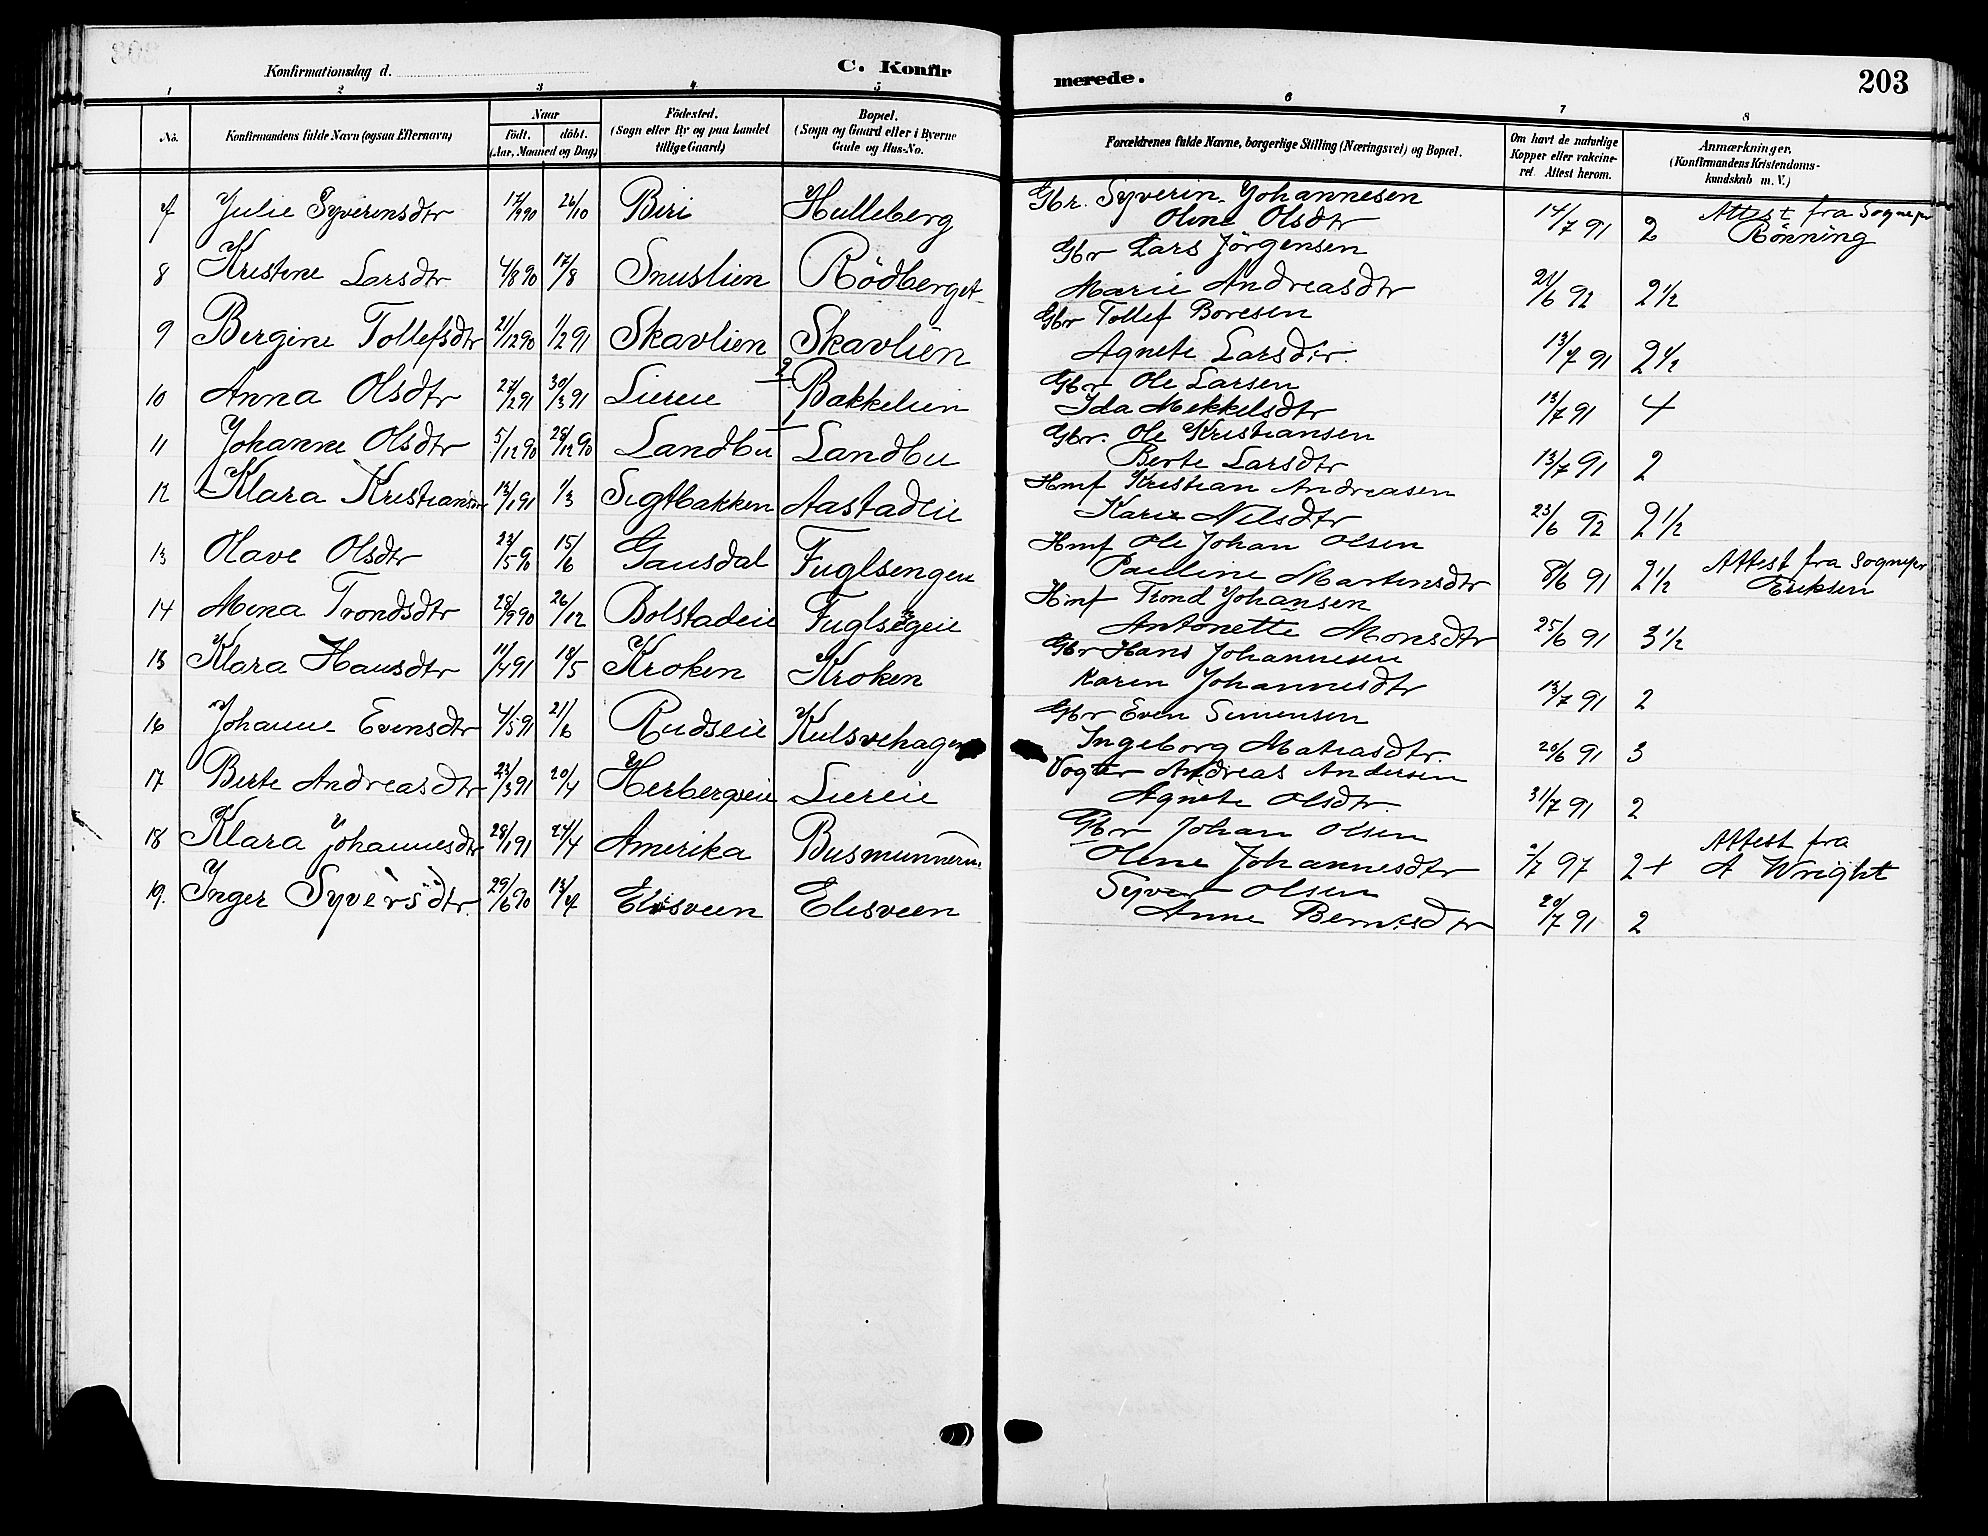 203
Konfirmationsdag d.
C. Konfirmerede.
1 2 3 4 5 6 7 8
No. Konfirmandens fulde Navn (ogsaa Efternavn) Naar födt. döbt. (Aar, Maaned og Dag) Födested. (Sogn eller By og paa Landet tillige Gaard) Bopæl. (Sogn og Gaard eller i Byerne Gade og Hus-No. Forældrenes fulde Navne, borgerlige Stilling (Næringsvei) og Bopæl. Om havt de naturlige Kopper eller vakcineret. Attest herom. Anmærkninger. (Konfirmandens Kristendomskundskab m. V.)
7 Julie Syverinsdtr 17/9 90 26/10 Biri Hulleberg Gbr. Syverin Johannesen Oline Olsdtr 14/7 91 2 Attest fra Sognepr Rönning
8 Kristine Larsdtr 4/8 90 17/8 Snuslien Rödberget Gbr Lars Jörgensen Marie Andreasdtr 21/6 92 2½
9 Bergine Tollefsdtr 21/12 90 1/2 91 Skavlien Skavlien Gbr Tollef Boresen Agnete Larsdtr. 13/7 91 2½
10 Anna Olsdtr 27/2 91 30/3 91 Liereie Bakkelien Gbr Ole Larsen Ida Mekkelsdtr 13/7 91 4
11 Johanne Olsdtr 5/12 90 28/12 90 Landbu Landbu Gbr. Ole Kristiansen Berte Larsdtr 13/7 91 2
12 Klara Kristiansdtr 13/1 91 1/3 Sigtbakken Aastadeie Hmf Kristian Andreasen Kari Nilsdtr 23/6 92 2½
13 Olave Olsdtr 23/5 90 15/6 Gausdal Fuglsengen Hmf Ole Johan Olsen Pauline Martinsdtr 8/6 91 2½ Attest fra Sognepr Eriksen
14 Mina Trondsdtr 28/9 90 26/12 Bolstadeie Fuglsegeie Hmf Trond Johansen Antonette Monsdtr 25/6 91 3½
15 Klara Hansdtr 11/4 91 18/5 Kroken Kroken Gbr Hans Johannesen Karen Johannesdtr 13/7 91 2
16 Johanne Evensdtr 4/5 91 21/6 Rudseie Kulsvehagen Gbr Even Simensen Ingeborg Matiasdtr. 20/6 91 3
17 Berte Andreasdtr 23/3 91 20/4 Herbergseie Liereie Vogter Andreas Andersen Agnete Olsdtr. 31/7 91 2
18 Klara Johannesdtr 28/1 91 24/4 Amerika Busmunnerud Gbr Johan Olsen Oline Johannesdtr /7 97 2+ Attest fra A Wright
19. Inger Syversdtr. 29/6 90 13/7 Elisveen Elisveen Syver Olsen Anne Berntsdtr 20/7 91 2